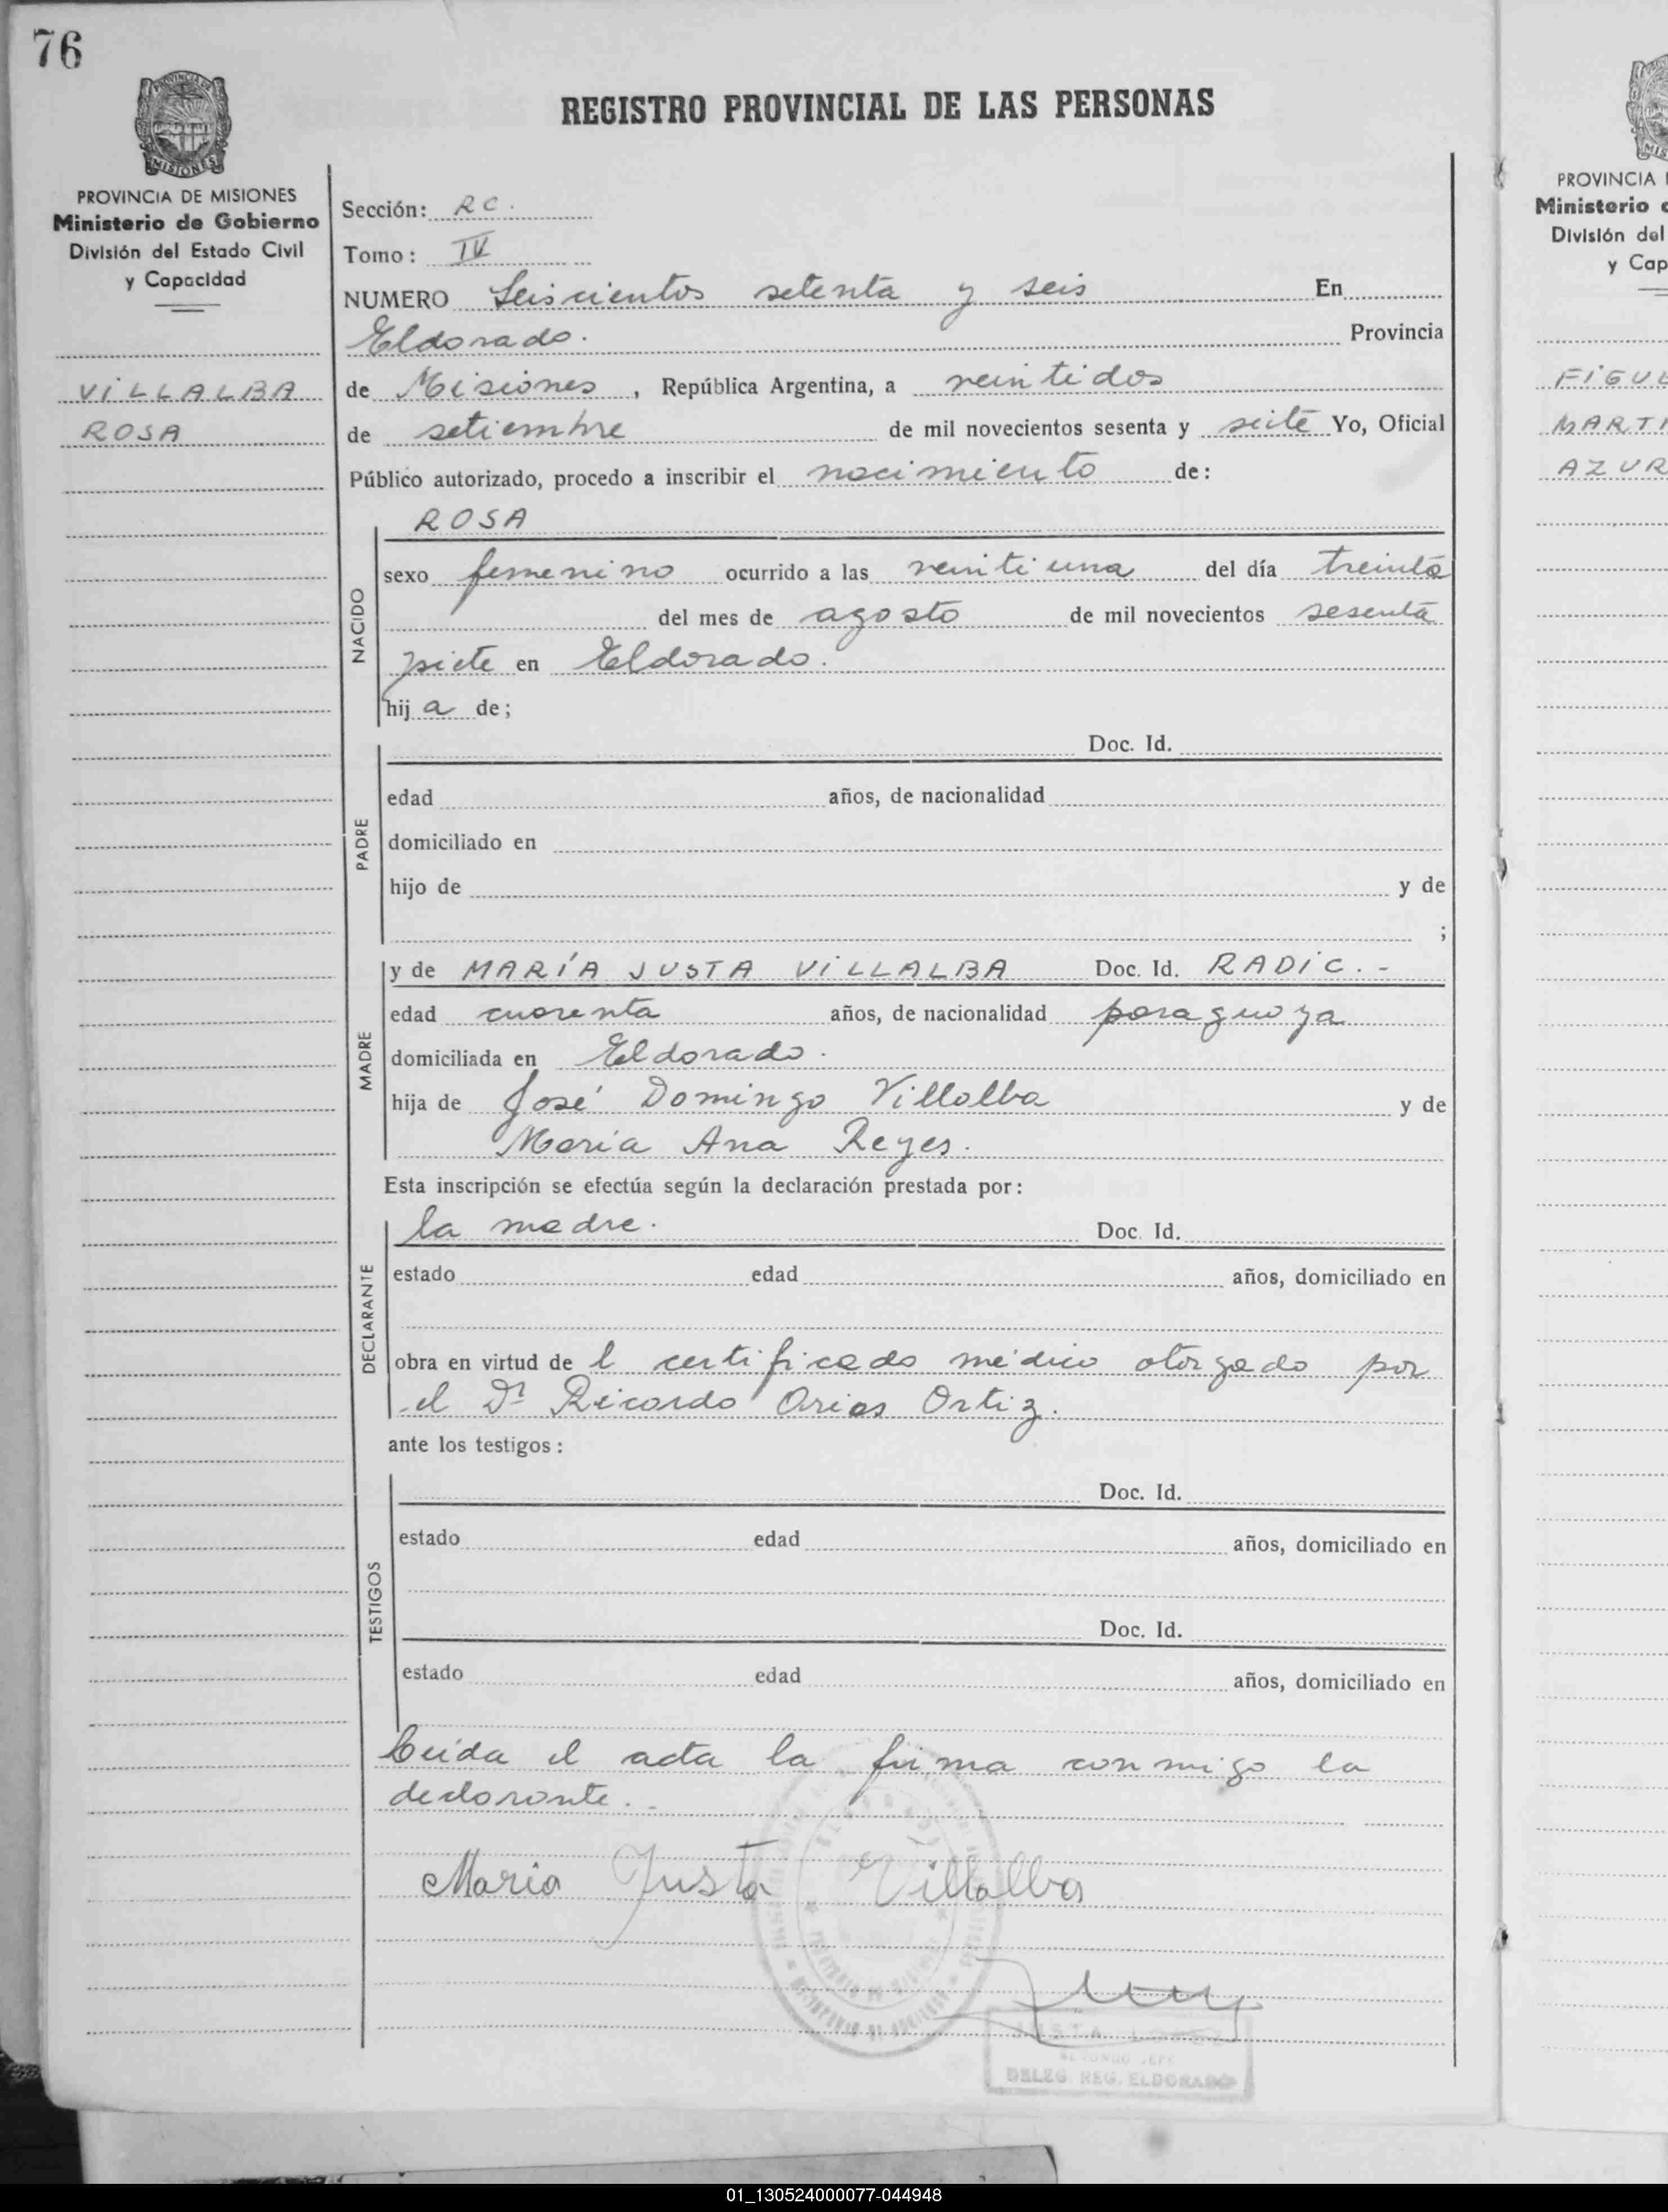 76
REGISTRO PROVINCIAL DE LAS PERSONAS
PROVINCIA DE MISIONES
MISIONES
PROVINCIA DE MISIONES
Ministerio de Gobierno
División del Estado Civil
y Capacidad
VILLALBA
ROSA
Sección: RC.
Tomo: IV
NUMERO Seiscientos setenta y seis En
Eldorado. Provincia
de Misiones, República Argentina, a veintidos
de setiembre de mil novecientos sesenta y seite Yo, Oficial
Público autorizado, procedo a inscribir el nacimiento de:
NACIDO
ROSA
sexo femenino ocurrido a las veintiuna del día treinta
del mes de agosto de mil novecientos sesenta
siete en Eldorado.
hija de;
PADRE
Doc. Id.
edad años, de nacionalidad
domiciliado en
hijo de y de
;
MADRE
y de MARÍA JUSTA VILLALBA Doc. Id. RADIC.-
edad cuarenta años, de nacionalidad paraguaya
domiciliada en Eldorado.
hija de José Domingo Villalba y de
María Ana Reyes.
Esta inscripción se efectúa según la declaración prestada por:
DECLARANTE
la madre. Doc. Id.
estado edad años, domiciliado en
obra en virtud de l certificado médico otorgado por
el Dr Ricardo Arias Ortiz.
ante los testigos:
TESTIGOS
Doc. Id.
estado edad años, domiciliado en
Doc. Id.
estado edad años, domiciliado en
Leída el acta la firma conmigo la
declarante.
Maria Justa Villalba
DELEG. REG. ELDORADO
PROVINCIA
Ministerio
División del
y Cap
FIGUE
MARTI
AZUR
01_130524000077-044948